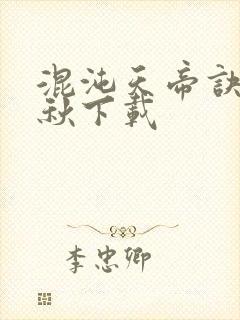 混沌天帝訣
秋下載
李忠卿